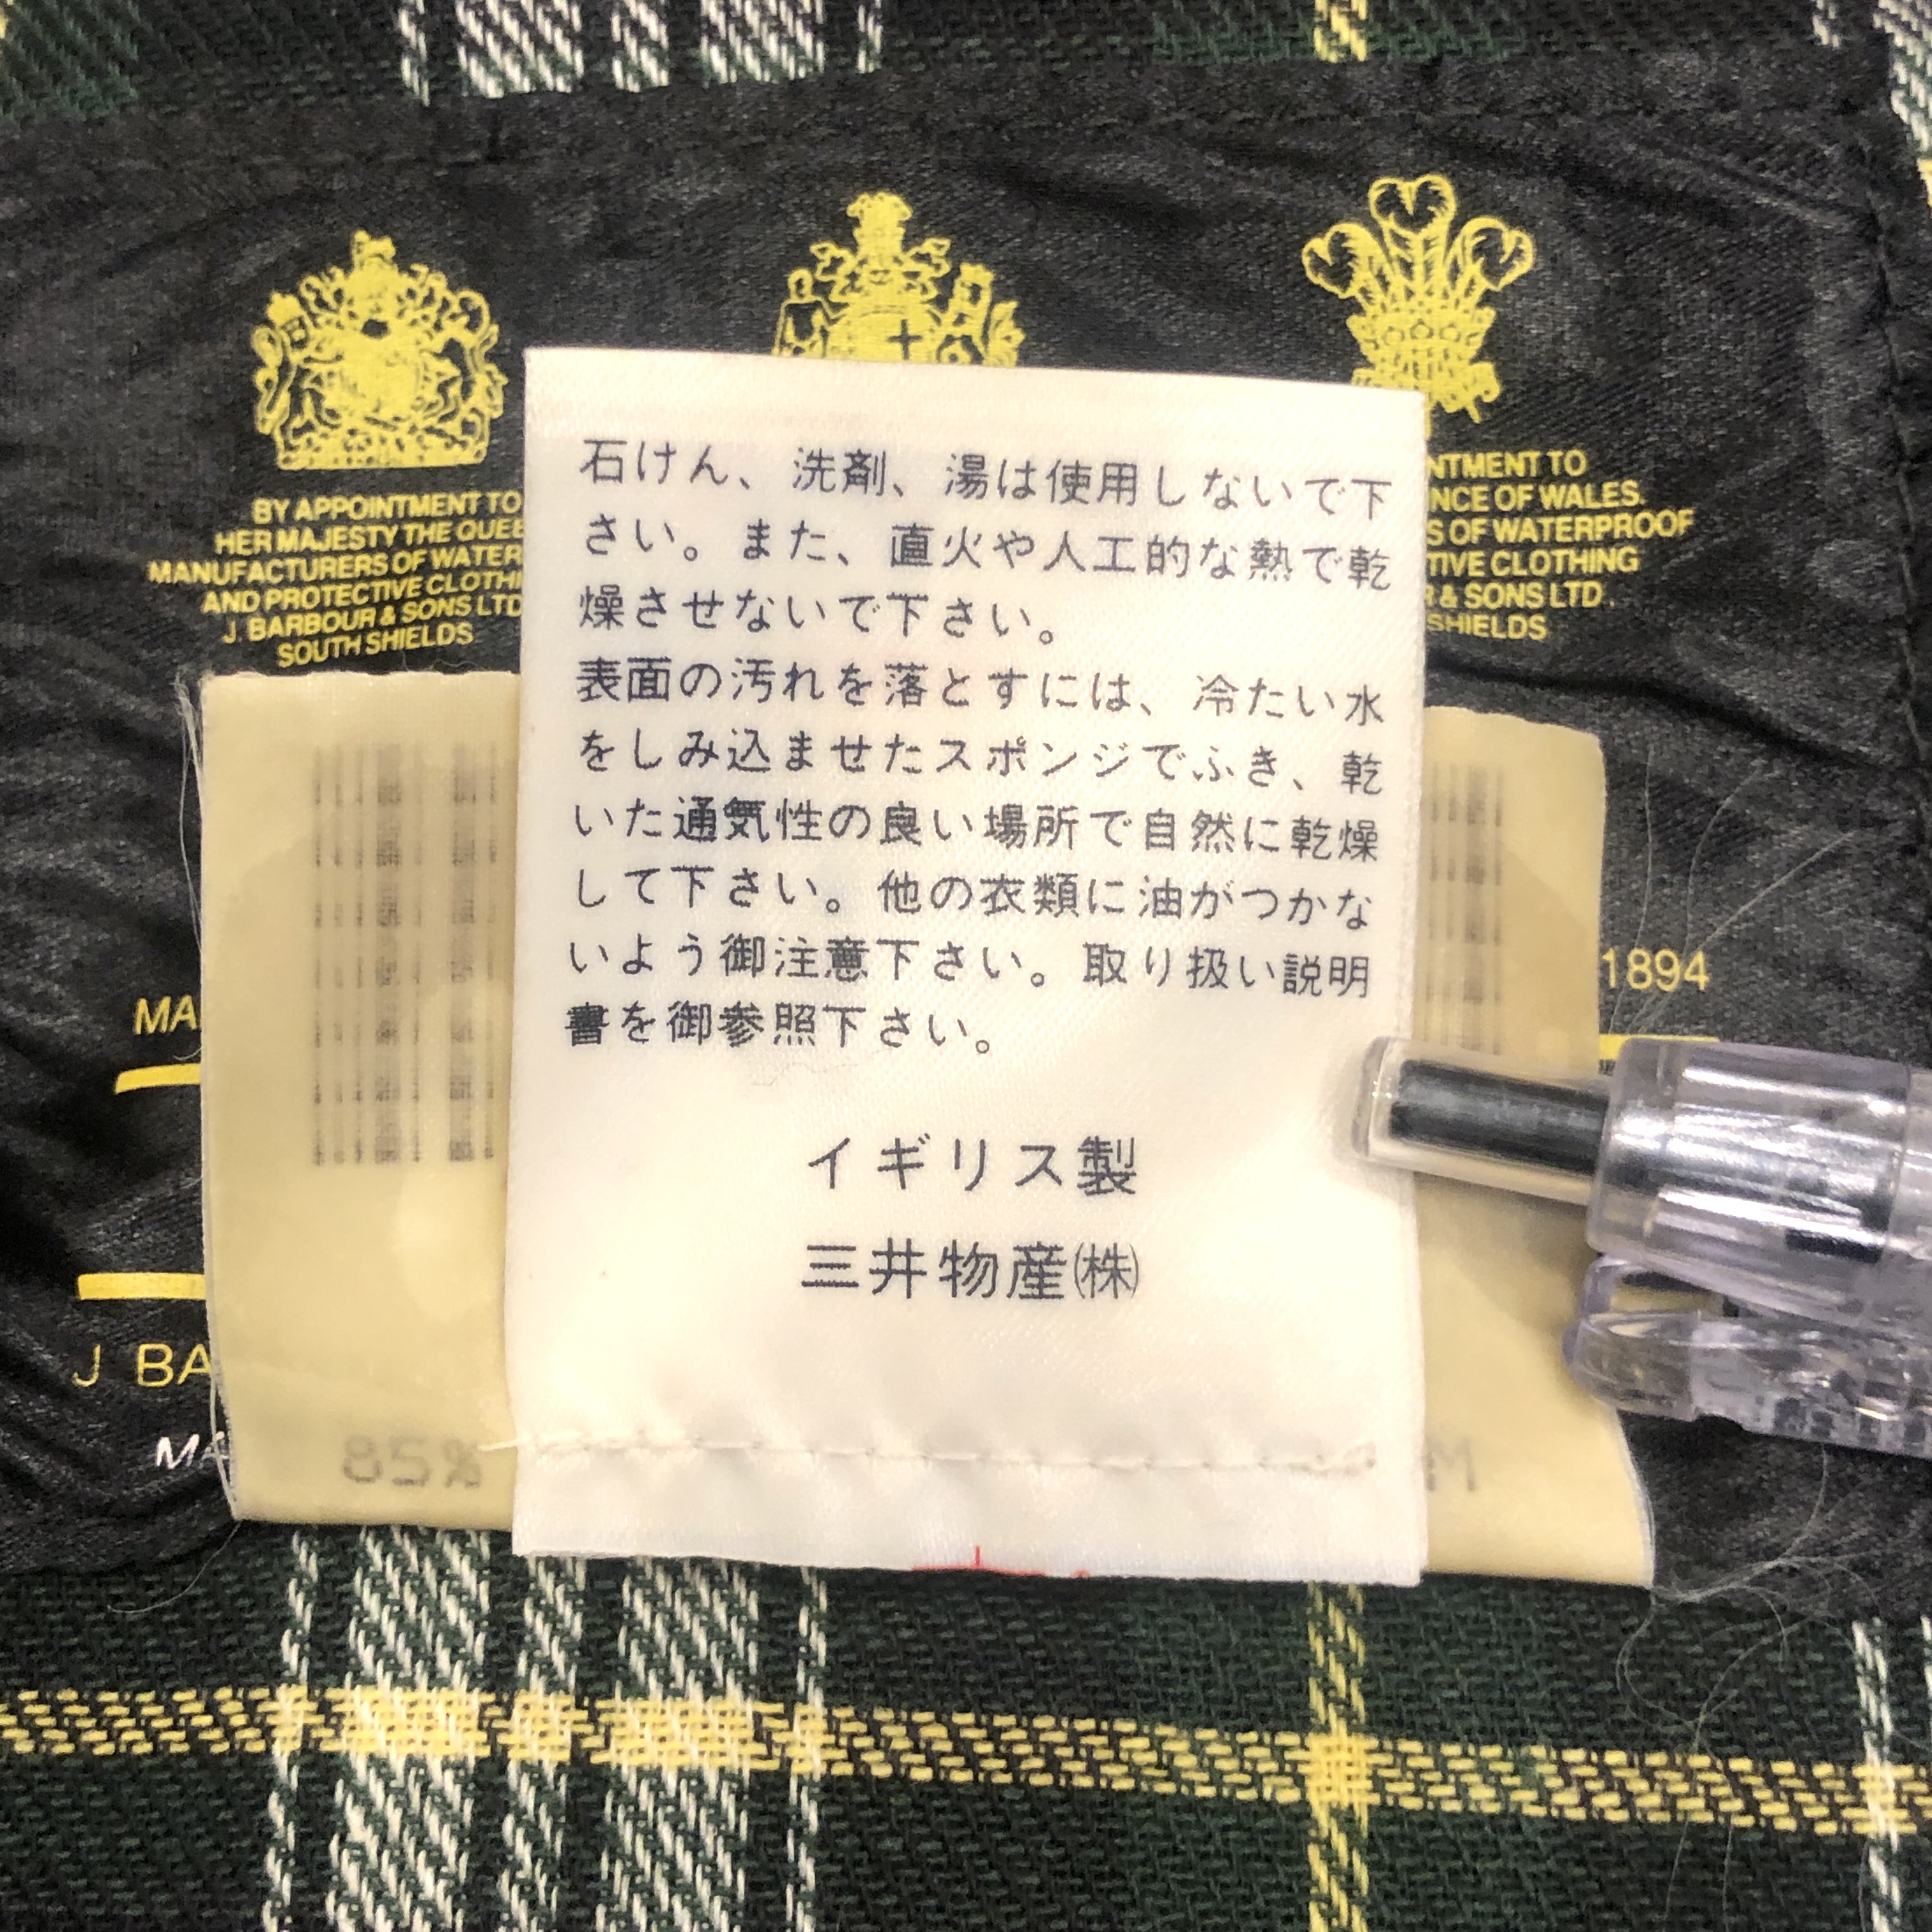 BY APPOINTMENT TO
HER MAJESTY THE
MANUFACTURERS OF
AND PROTECTIVE
J. BARBOUR & SONS LTD
SOUTH SHIELDS
TO
OF WALES.
OF WATERPROOF
CLOTHING
& SONS LTD.
石けん、洗剤、湯は使用しないで下
さい。また、直火や人工的な熱で乾
燥させないで下さい。
表面の汚れを落とすには、冷たい水
をしみ込ませたスポンジでふき、乾
いた通気性の良い場所で自然に乾燥
して下さい。他の衣類に油がつかな
いよう御注意下さい。取り扱い説明
書を御参照下さい。
イギリス製
三井物産㈱
1894
J
85%